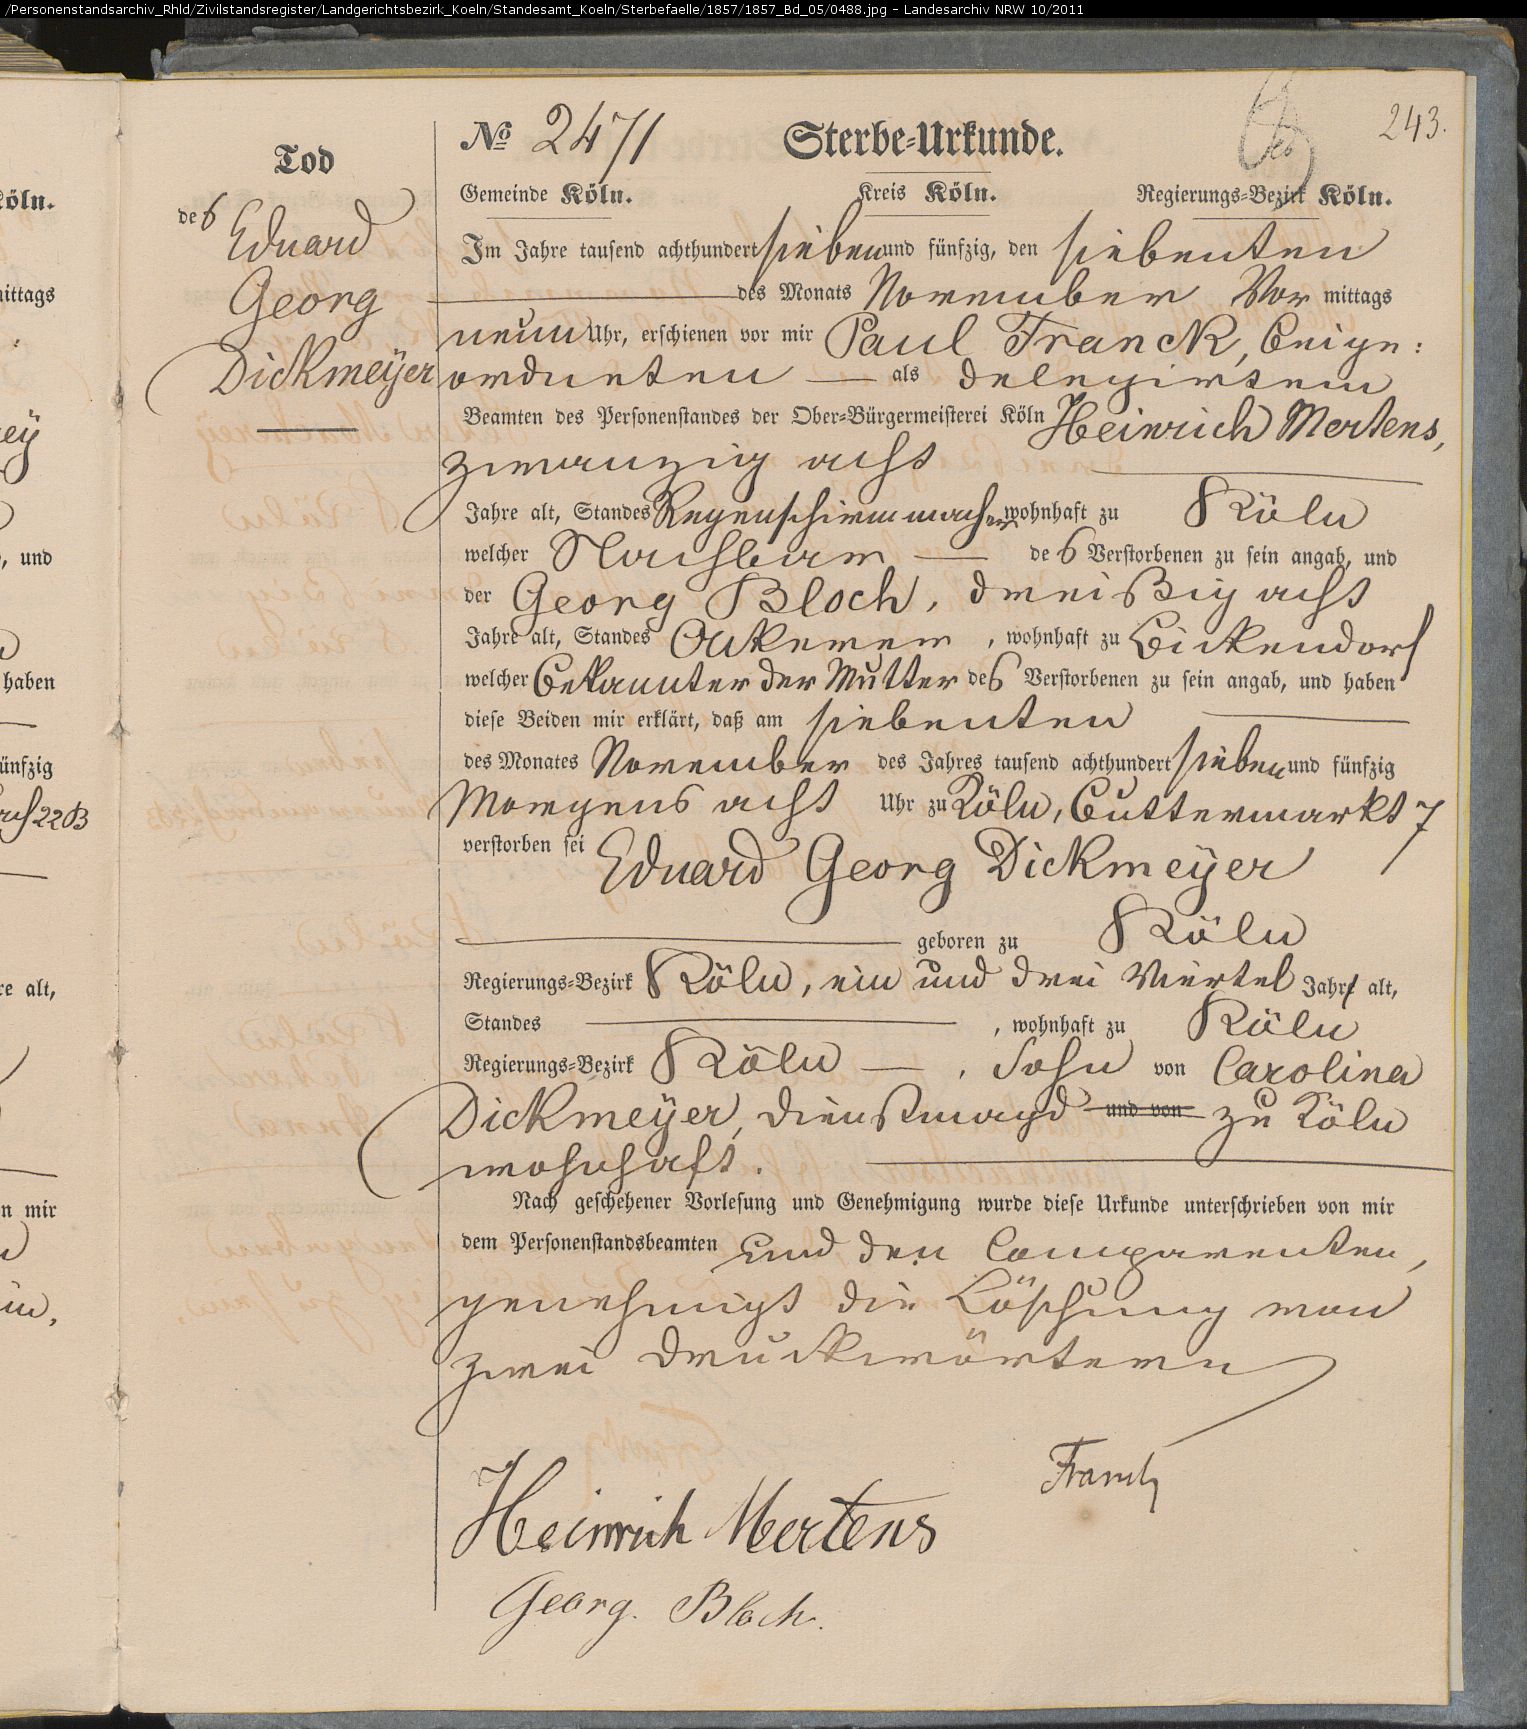 /Personenstandsarchiv_Rhld/Zivilstandsregister/Landgerichtsbezirk_Koeln/Standesamt_Koeln/Sterbefaelle/1857/1857_Bd_05/0488.jpg - Landesarchiv NRW 10/2011
243.
Nº 2471 Sterbe-Urkunde.
Gemeinde Köln. Kreis Köln. Regierungs-Bezirk Köln.
Tod
des Eduard
Georg
Dickmeÿer
Im Jahre tausend achthundert sieben und fünfzig, den siebenten
des Monats November Vor mittags
neun Uhr, erschienen vor mir Paul Franck, Beige:
ordneten als delegirtem
Beamten des Personenstandes der Ober-Bürgermeisterei Köln Heinrich Mertens,
zwanzig acht
Jahre alt, Standes Regenschirmmacher wohnhaft zu Köln
welcher Nachbar des Verstorbenen zu sein angab, und
der Georg Bloch, dreißig acht
Jahre alt, Standes Ackerer, wohnhaft zu Bickendorf
welcher Bekannter der Mutter des Verstorbenen zu sein angab, und haben
diese Beiden mir erklärt, daß am siebenten
des Monates November des Jahres tausend achthundert sieben und fünfzig
Morgens acht Uhr zu Köln, Buttermarkt 7
verstorben sei Eduard Georg Dickmeÿer
geboren zu Köln
Regierungs-Bezirk Köln, ein und drei Viertel Jahr alt,
Standes , wohnhaft zu Köln
Regierungs-Bezirk Köln , Sohn von Carolina
Dickmeÿer, Dienstmagd und von zu Köln
wohnhaft.
Nach geschehener Vorlesung und Genehmigung wurde diese Urkunde unterschrieben von mir
dem Personenstandsbeamten und den Comparenten,
genehmigt die Löschung von
zwei Druckwörtern
Franck
Heinrich Mertens
Georg. Bloch.
öln.
mittags
eÿ
, und
haben
ünfzig
22B
re alt,
n mir